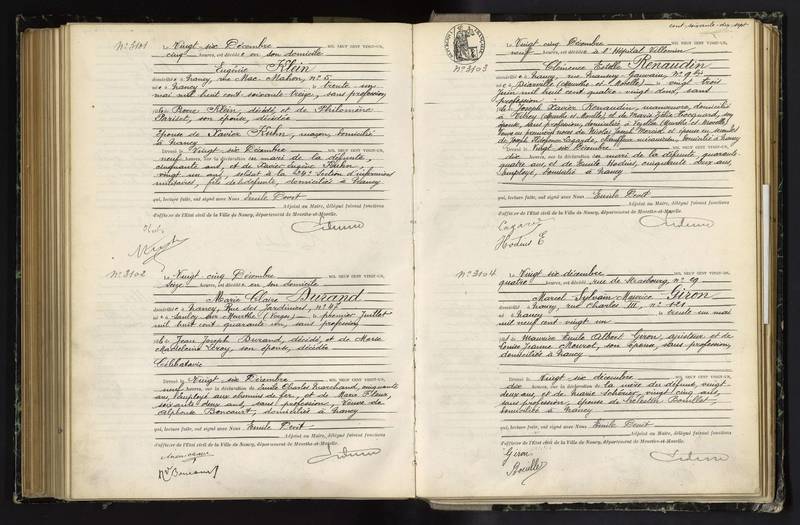 cent soixante-dix-sept
N° 3101
Le Vingt-six Décembre MIL NEUF CENT VINGT-UN,
cinq heures, est décédée en son domicile
Eugénie Klein
domiciliée à Nancy, rue Mac-Mahon, n° 5,
née à Nancy le trente un
mai mil huit cent soixante treize, sans profession,
fille de Klein, décédé, et de Philomène
son épouse, décédée
Épouse de Xavier Kuhn, maçon, domicilié
à Nancy
Dressé le Vingt-six Décembre MIL NEUF CENT VINGT-UN,
neuf heures, sur la déclaration du mari de la défunte,
cinquante ans, et de Xavier Eugène Kuhn,
vingt un ans, soldat à la Section d'infirmiers
militaires, fils de la défunte, domiciliés à Nancy
qui, lecture faite, ont signé avec Nous Emile Devit
Adjoint au Maire, délégué faisant fonctions
d'officier de l'État civil de la Ville de Nancy, département de Meurthe-et-Moselle.
N° 3102
Le Vingt cinq Décembre MIL NEUF CENT VINGT-UN,
seize heures, est décédée en son domicile
Marie Claire Durand
domiciliée à Nancy, Rue des Jardiniers, n° 47
née à Saulcy sur Meurthe (Vosges) le premier Juillet
mil huit cent quarante un, sans profession
fille de Jean Joseph Durand, décédé, et de Marie
Madeleine son épouse, décédée
Célibataire
Dressé le Vingt-six Décembre MIL NEUF CENT VINGT-UN,
neuf heures, sur la déclaration de Emile Charles Marchand, cinquante
ans, employé aux chemins de fer, et de Marie
soixante deux ans, sans profession, Veuve de
Alphonse Boncourt, domiciliés à Nancy
qui, lecture faite, ont signé avec Nous Emile Devit
Adjoint au Maire, délégué faisant fonctions
d'officier de l'État civil de la Ville de Nancy, département de Meurthe-et-Moselle.
N° 3103
Le Vingt cinq Décembre MIL NEUF CENT VINGT-UN,
neuf heures, est décédée à l'Hôpital Villemin
Clémence Estelle Renaudin
domiciliée à Nancy, rue
née à (Meurthe et Moselle) le vingt trois
Juin mil huit cent quatre-vingt deux, sans
profession
fille de Joseph Xavier Renaudin, manœuvre, domicilié
à (Meurthe et Moselle) et de Marie son
épouse, sans profession, domiciliée à (Meurthe et Moselle)
Veuve en premières noces de Nicolas et épouse en secondes
de Joseph mécanicien, domicilié à Nancy
Dressé le Vingt six Décembre MIL NEUF CENT VINGT-UN,
dix heures, sur la déclaration du mari de la défunte, quarante
quatre ans, et de Emile Hodius, cinquante deux ans,
employé, domiciliés à Nancy
qui, lecture faite, ont signé avec Nous Emile Devit
Adjoint au Maire, délégué faisant fonctions
d'officier de l'État civil de la Ville de Nancy, département de Meurthe-et-Moselle.
Hodius E
N° 3104
Le Vingt-six décembre MIL NEUF CENT VINGT-UN,
quatre heures, est décédé rue de Strasbourg, n° 29
Marcel Sylvain Maurice Giron
domicilié à Nancy, rue Charles III, n° 121
né à Nancy le trente un mai
mil neuf cent vingt un
fils de Maurice Emile Albert Giron, ajusteur, et de
Louise Jeanne son épouse, sans profession,
domiciliés à Nancy
Dressé le Vingt-six décembre MIL NEUF CENT VINGT-UN,
dix heures, sur la déclaration de la mère du défunt, vingt-
deux ans, et de Marie vingt cinq ans,
sans profession, épouse de Célestin Bouillet,
domiciliés à Nancy
qui, lecture faite, ont signé avec Nous Emile Devit
Adjoint au Maire, délégué faisant fonctions
d'officier de l'État civil de la Ville de Nancy, département de Meurthe-et-Moselle.
Giron
Bouillet